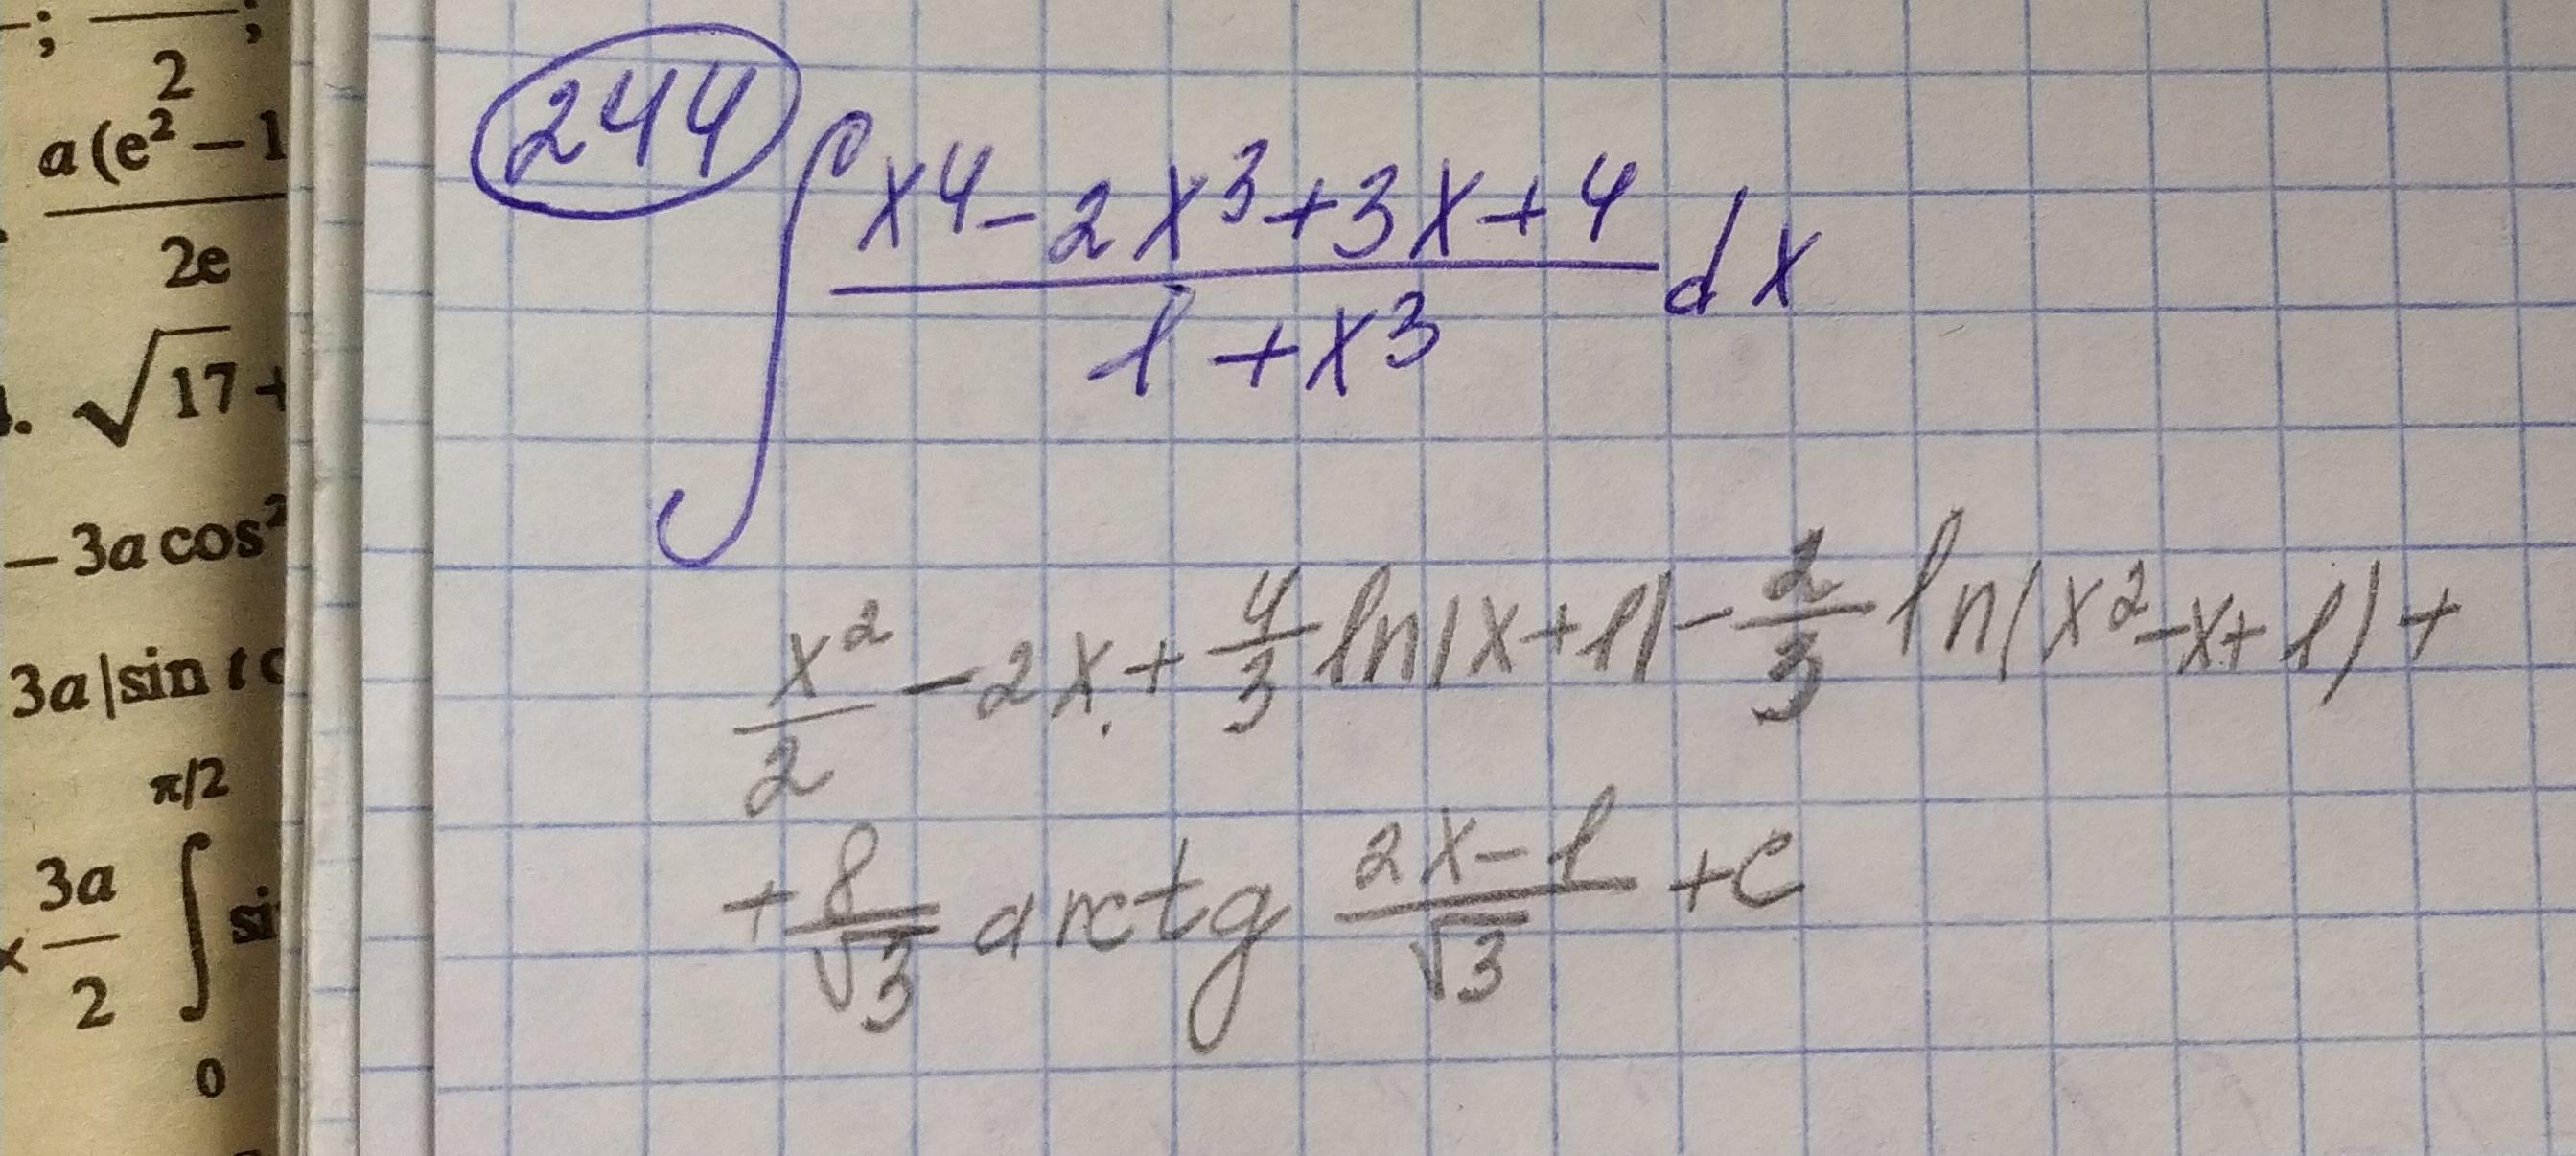 —; —;
2
a(e² – 1
2e
√17 +
– 3a cos²
3a|sin t c
π/2
× 3a/2 ∫ sin
0
244 ∫ (x⁴ - 2x³ + 3x + 4)/(1 + x³) dx
x²/2 - 2x + 4/3 ln|x+1| - 2/3 ln|x² - x + 1| +
+ 8/√3 arctg (2x - 1)/√3 + C